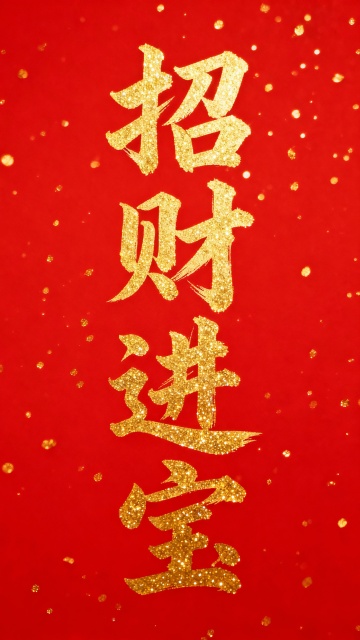 招财进宝